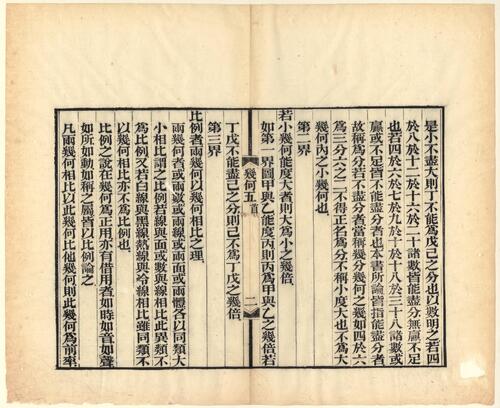 是小不盡大則丁不能為戊己之分也以數明之若四
於八於十二於十六於二十諸數皆能盡分無贏不足
也若四於六於七於九於十於十八於三十八諸數或
贏或不足皆不能盡分者也本書所論皆指能盡分者
故稱為分若不盡分者當稱幾分幾何之幾如四於六
為三分六之二不得正名為分不稱小度大也不為大
幾何內之小幾何也
第二界
若小幾何能度大者則大為小之幾倍
如第一界圖甲與乙能度丙則丙為甲與乙之幾倍若
幾何五首
二
丁戊不能盡己之分則己不為丁戊之幾倍
第三界
比例者兩幾何以幾何相比之理
兩幾何者或兩數或兩線或兩面或兩體各以同類大
小相比謂之比例若線與面或數與線相比此異類不
為比例又若白線與黑線熱線與冷線相比雖同類不
以幾何相比亦不為比例也
比例之說在幾何為正用亦有借用者如時如音如聲
如所如動如稱之屬皆以比例論之
凡兩幾何相比以此幾何比他幾何則此幾何為前率